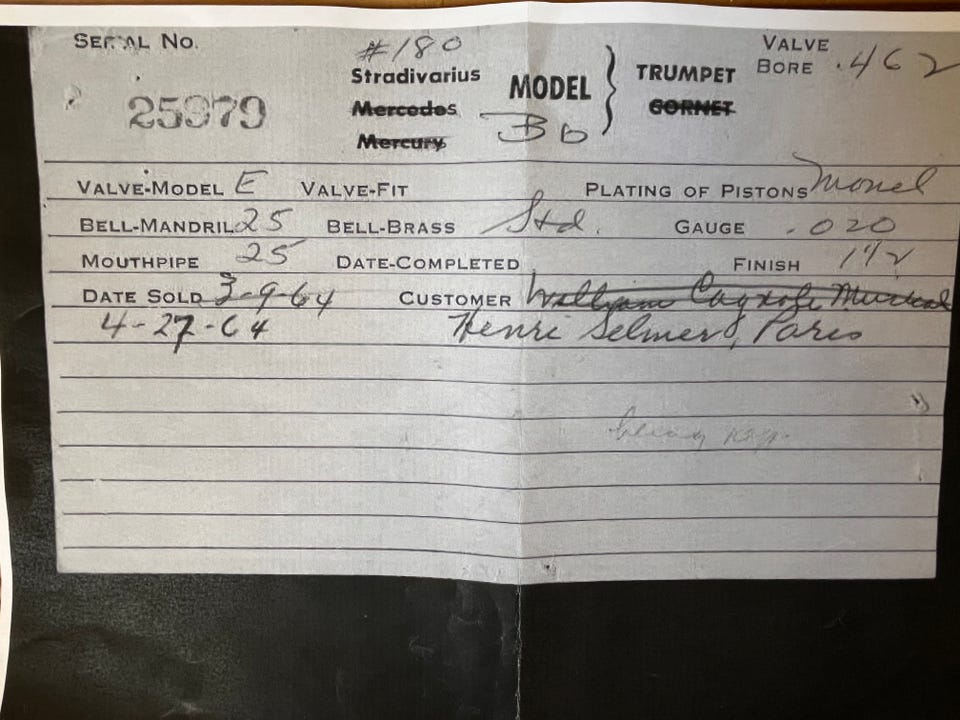 SERIAL No. #180 VALVE
25979 Stradivarius MODEL } TRUMPET BORE .462
Mercedes Bb CORNET
Mercury
VALVE-MODEL E VALVE-FIT PLATING OF PISTONS Monel
BELL-MANDRIL 25 BELL-BRASS Std. GAUGE .020
MOUTHPIPE 25 DATE-COMPLETED FINISH
DATE SOLD 3-9-64 CUSTOMER William Musical
4-27-64 Henri Selmer, Paris